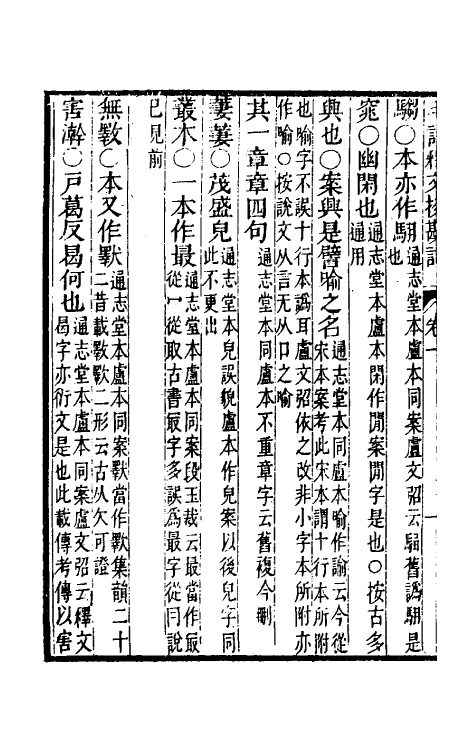 毛詩釋文校勘記 卷一
騶〇本亦作騆 通志堂本盧本同案盧文弨云騶舊譌騆是
也
窕〇幽閑也 通志堂本盧本閑作閒案閒字是也〇按古多
通用
興也〇案興是譬喻之名 通志堂本同盧本喻作諭云今從
宋本案考此宋本謂十行本所附
也喻字不誤十行本譌耳盧文弨依之改非小字本所附亦
作喻〇按說文从言无从口之喻
其一章章四句 通志堂本同盧本不重章字云舊複今刪
萋萋〇茂盛皃 通志堂本皃誤貌盧本作皃案以後皃字同
此不更出
叢木〇一本作最 通志堂本盧本同案段玉裁云最當作冣
從冖從取古書冣字多誤為最字從冃說
已見前
無斁〇本又作㪝 通志堂本盧本同案㪝當作㪝集韻二十
二昔載斁㪝二形云古从欠可證
害澣〇戶葛反曷何也 通志堂本盧本同案盧文弨云釋文
曷字亦衍文是也此載傳考傳以害